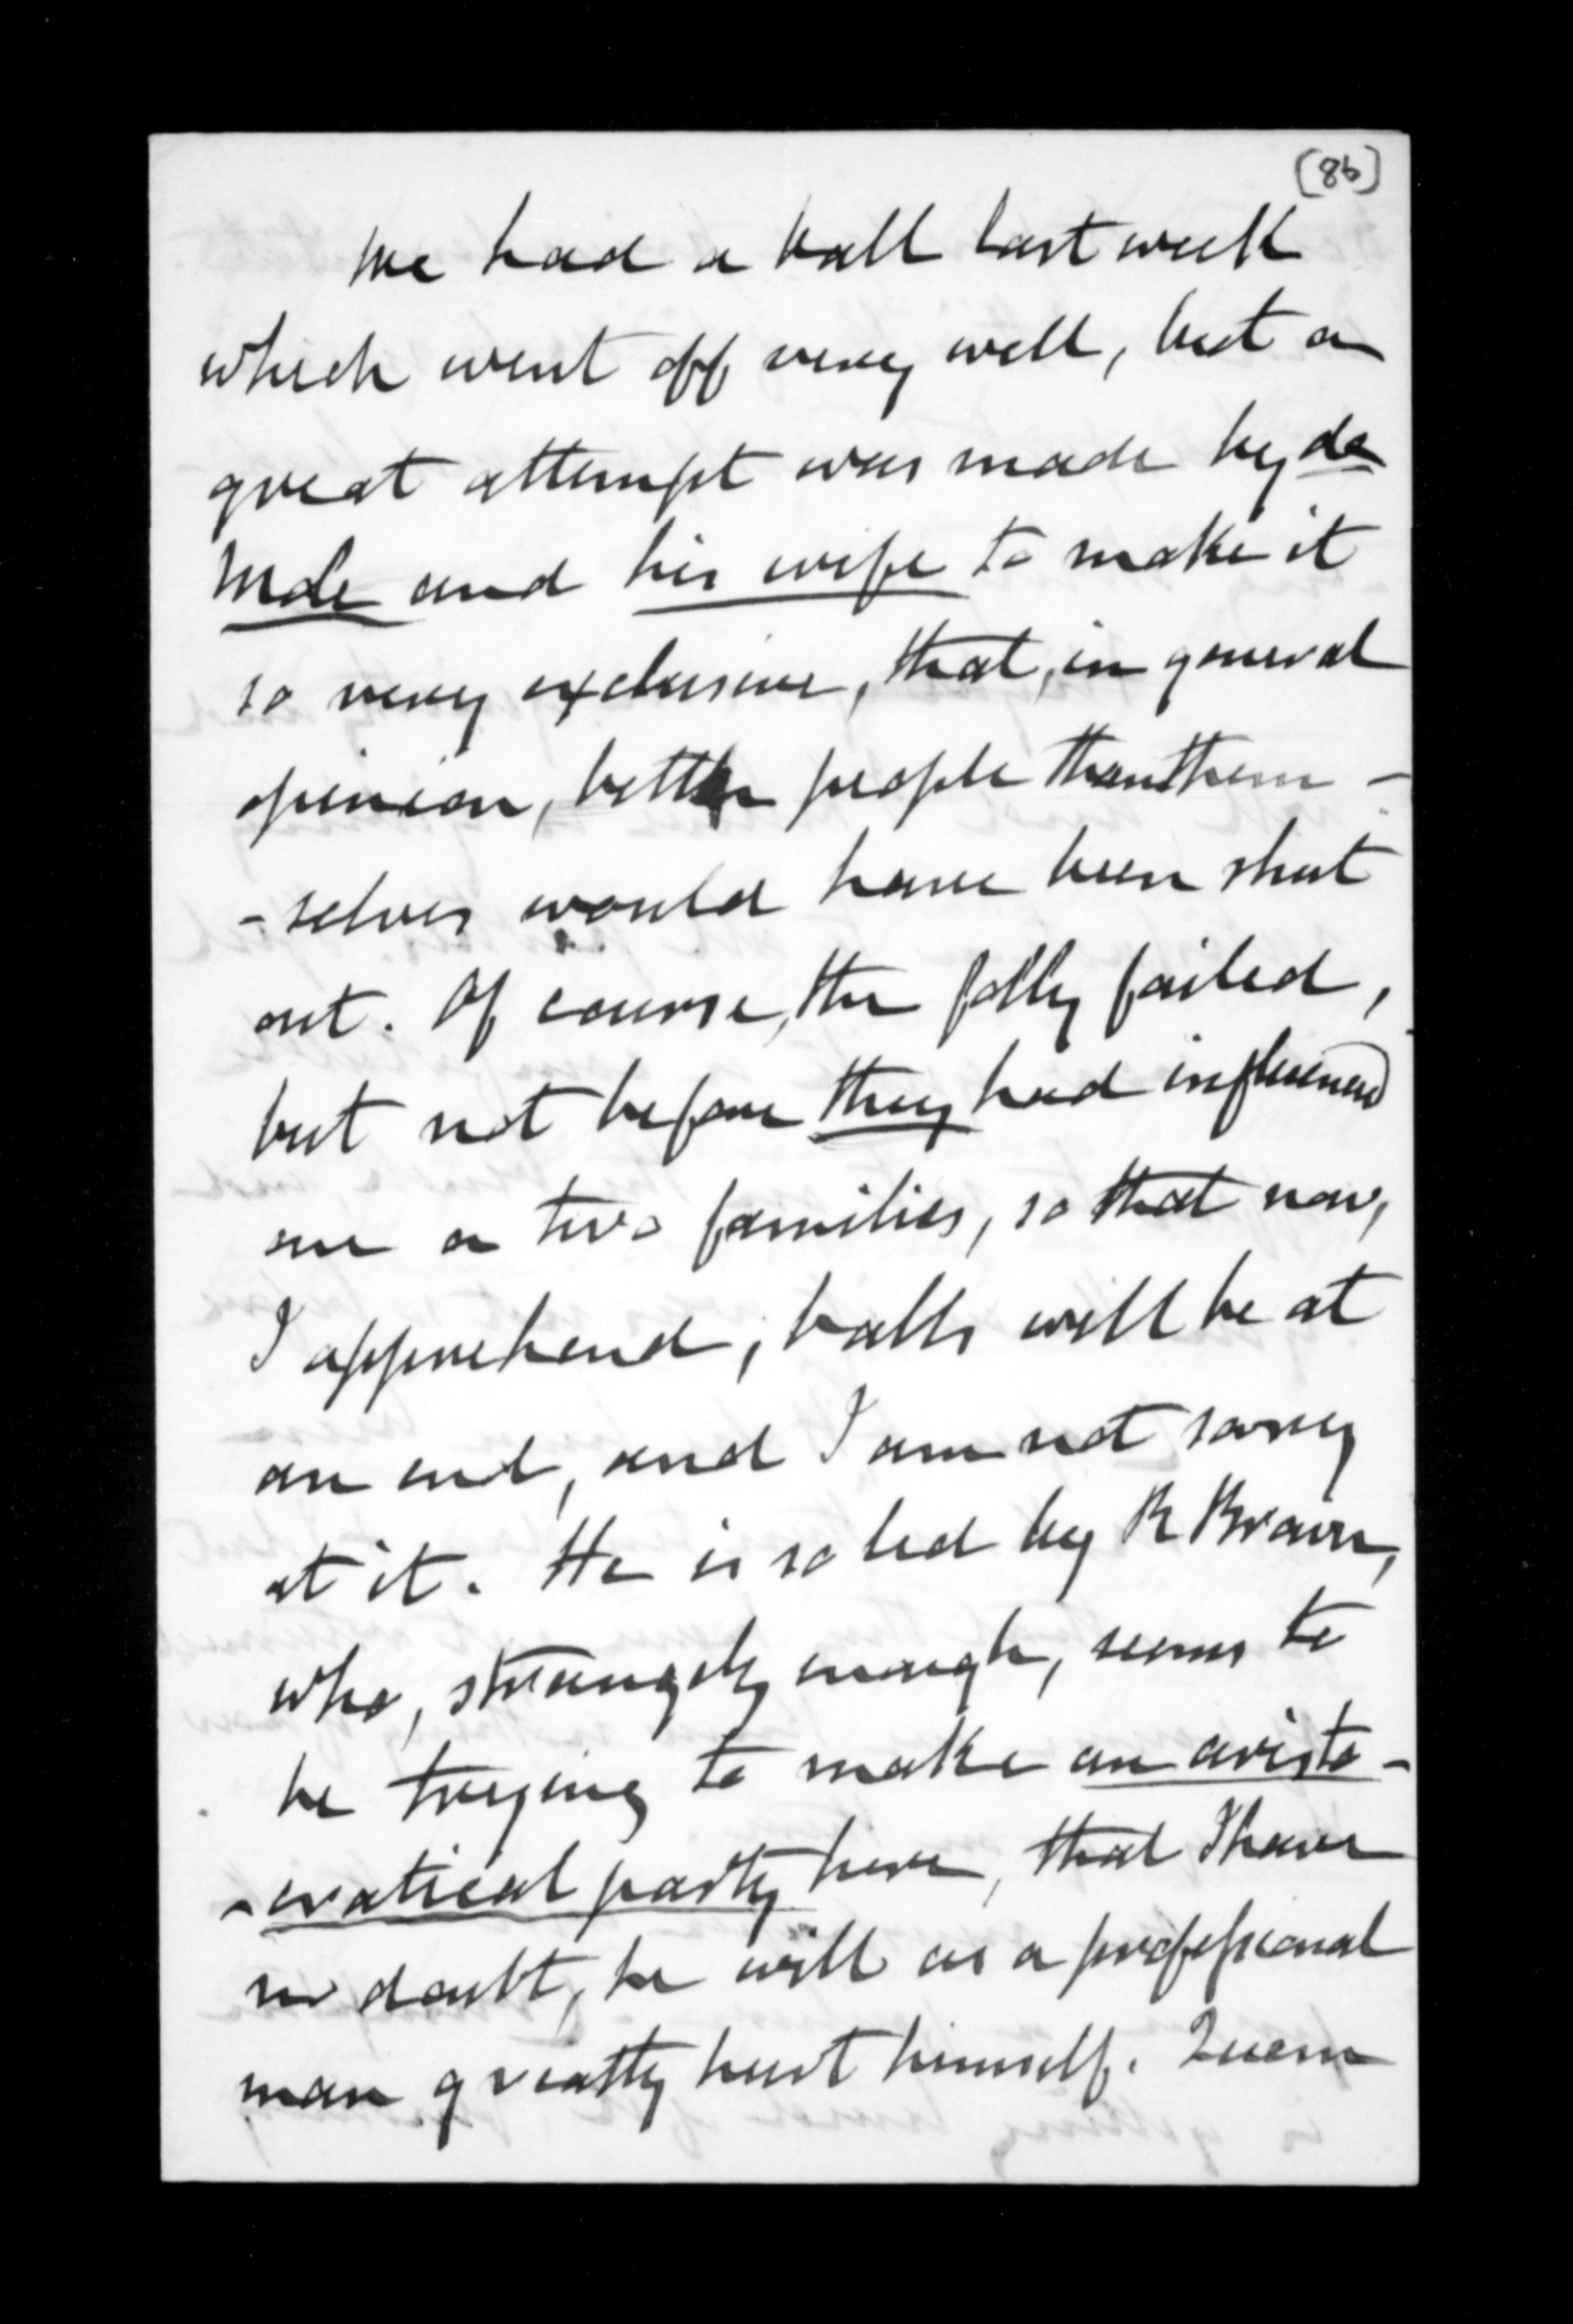 (86)
We had a ball last week
which went off very well, but a
great attempt was made by de
Mole and his wife to make it
so very exclusive, that, in general
opinion, better people than them-
-selves would have been shut
out. Of course, the folly failed,
but not before they had influenced
one or two families, so that now,
I apprehend, balls will be at
an end, and I am not sorry
at it. He is so led by R Brown,
who, strangely enough, seems to
be trying to make an aristo-
-cratical party here, that I have
no doubt, he will as a professional
man greatly hurt himself. Quem